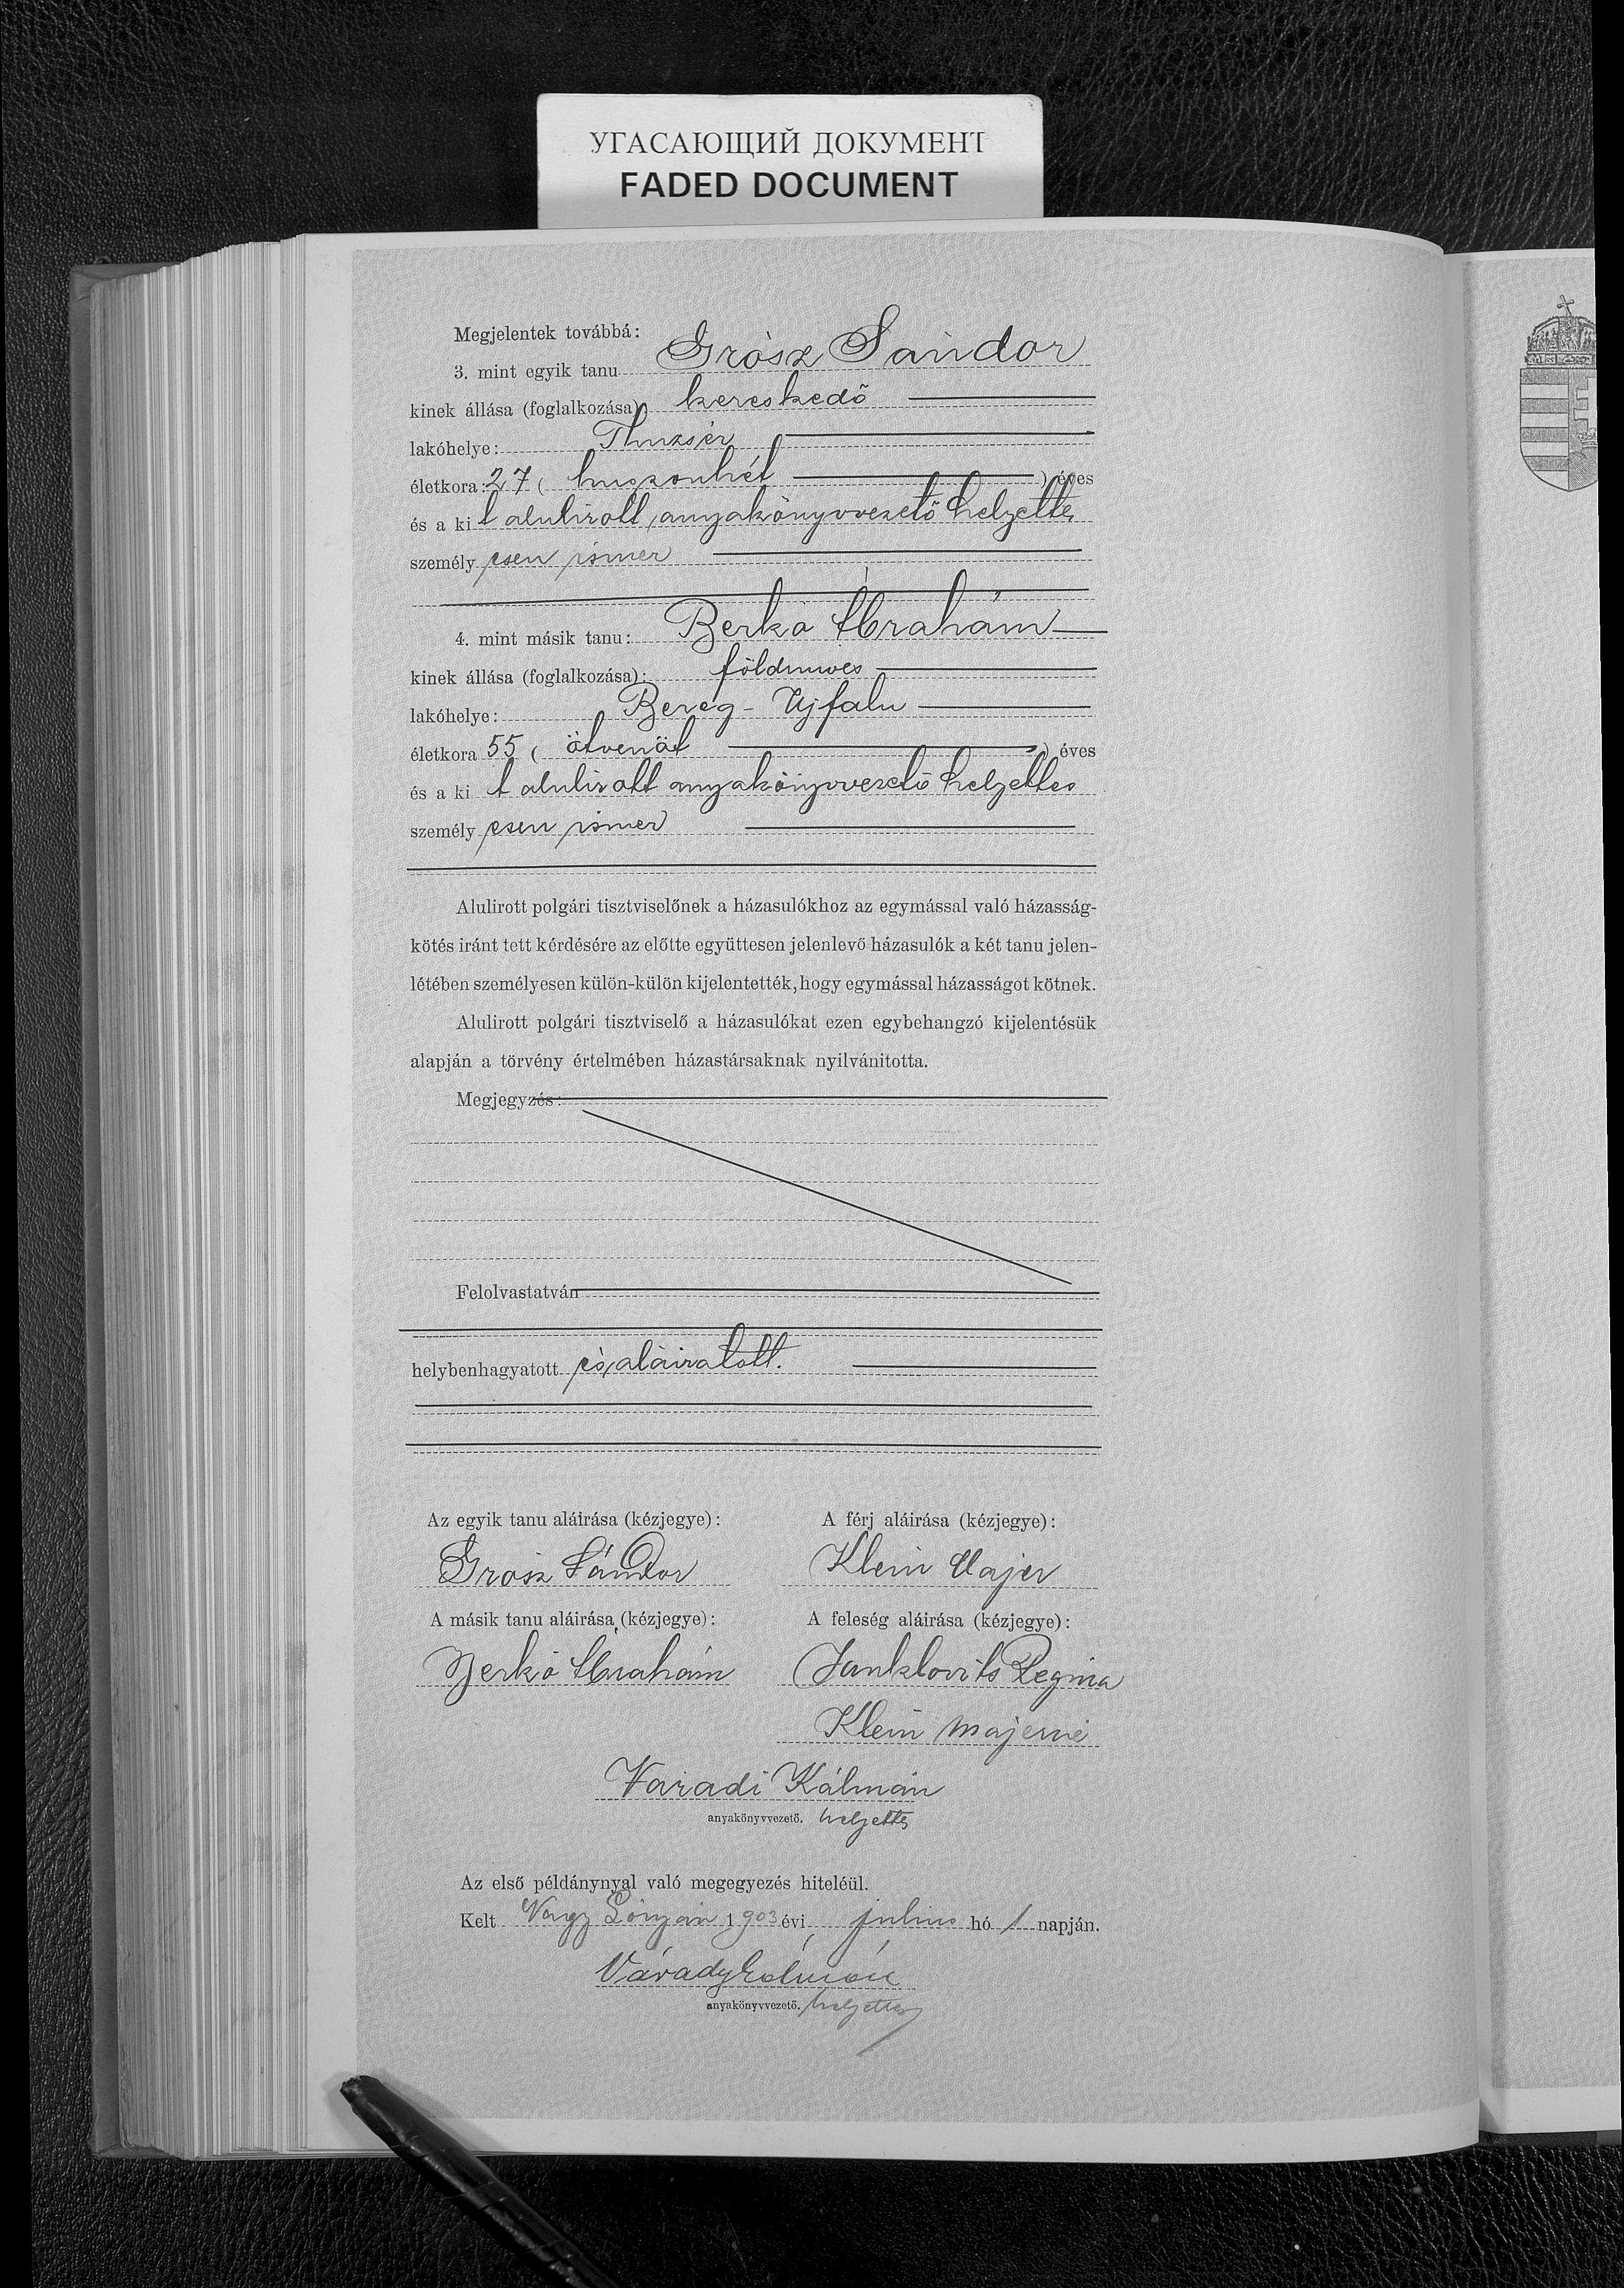 УГАСАЮЩИЙ ДОКУМЕНТ
FADED DOCUMENT
Megjelentek továbbá:
3. mint egyik tanu Grósz Sándor
kinek állása (foglalkozása): kereskedő
lakóhelye: Thuzsér
életkora: 27 ( huszonhét ) éves
és a ki t alulirott anyakönyvvezető helyettes
személy esen ismer
4. mint másik tanu: Berkó Ábrahám
kinek állása (foglalkozása): földmives
lakóhelye: Bereg-Ujfalu
életkora 55 ( ötvenöt ) éves
és a ki t alulirott anyakönyvvezető helyettes
személy esen ismer
Alulirott polgári tisztviselőnek a házasulókhoz az egymással való házasság-
kötés iránt tett kérdésére az előtte együttesen jelenlevő házasulók a két tanu jelen-
létében személyesen külön-külön kijelentették, hogy egymással házasságot kötnek.
Alulirott polgári tisztviselő a házasulókat ezen egybehangzó kijelentésük
alapján a törvény értelmében házastársaknak nyilvánitotta.
Megjegyzés:
Felolvastatván
helybenhagyatott és aláiratott.
Az egyik tanu aláirása (kézjegye): A férj aláirása (kézjegye):
Grósz Sándor Klein Majer
A másik tanu aláirása (kézjegye): A feleség aláirása (kézjegye):
Berkó Ábrahám Janklovits Regina
Klein Majerné
Váradi Kálmán
anyakönyvvezető. helyettes
Az első példánynyal való megegyezés hiteléül.
Kelt Nagy Lónyán 1903 évi julius hó 1 napján.
Várady Kálmán
anyakönyvvezető. helyettes